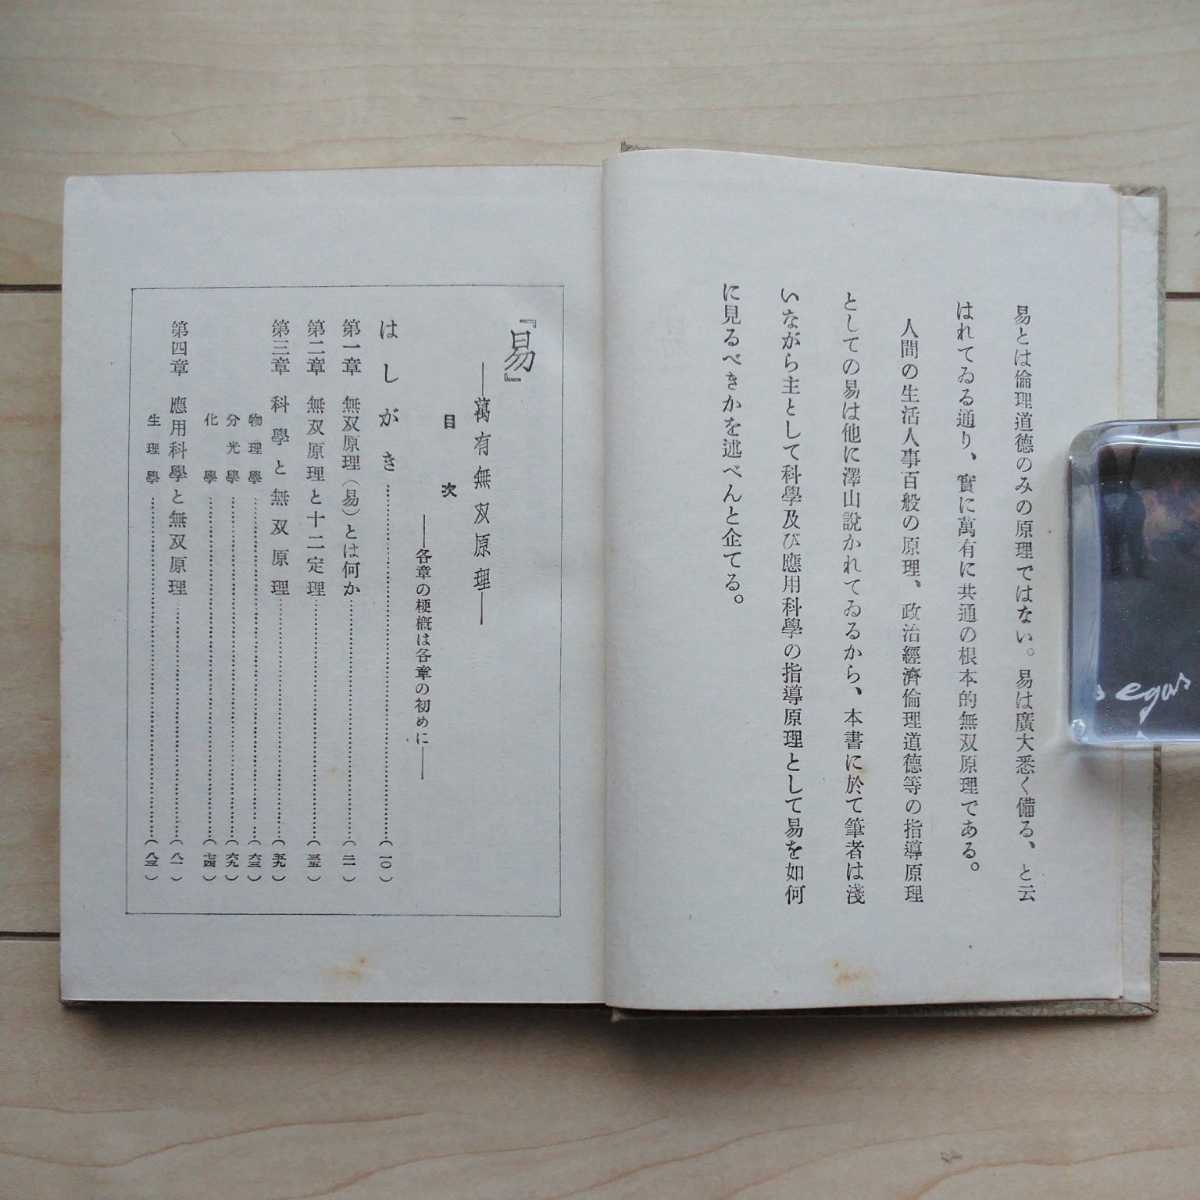 易とは倫理道德のみの原理ではない。易は廣大悉く備る、と云
はれてゐる通り、實に萬有に共通の根本的無双原理である。
人間の生活人事百般の原理、政治經濟倫理道德等の指導原理
としての易は他に澤山說かれてゐるから、本書に於て筆者は淺
いながら主として科學及び應用科學の指導原理として易を如何
に見るべきかを述べんと企てる。
『易』
——萬有無双原理——
目次
——各章の梗槪は各章の初めに——
はしがき……(一〇)
第一章 無双原理(易)とは何か……(二一)
第二章 無双原理と十二定理……(三五)
第三章 科學と無双原理……(五九)
物理學……(六三)
分光學……(六九)
化學……(七四)
第四章 應用科學と無双原理……(八一)
生理學……(八三)
egas